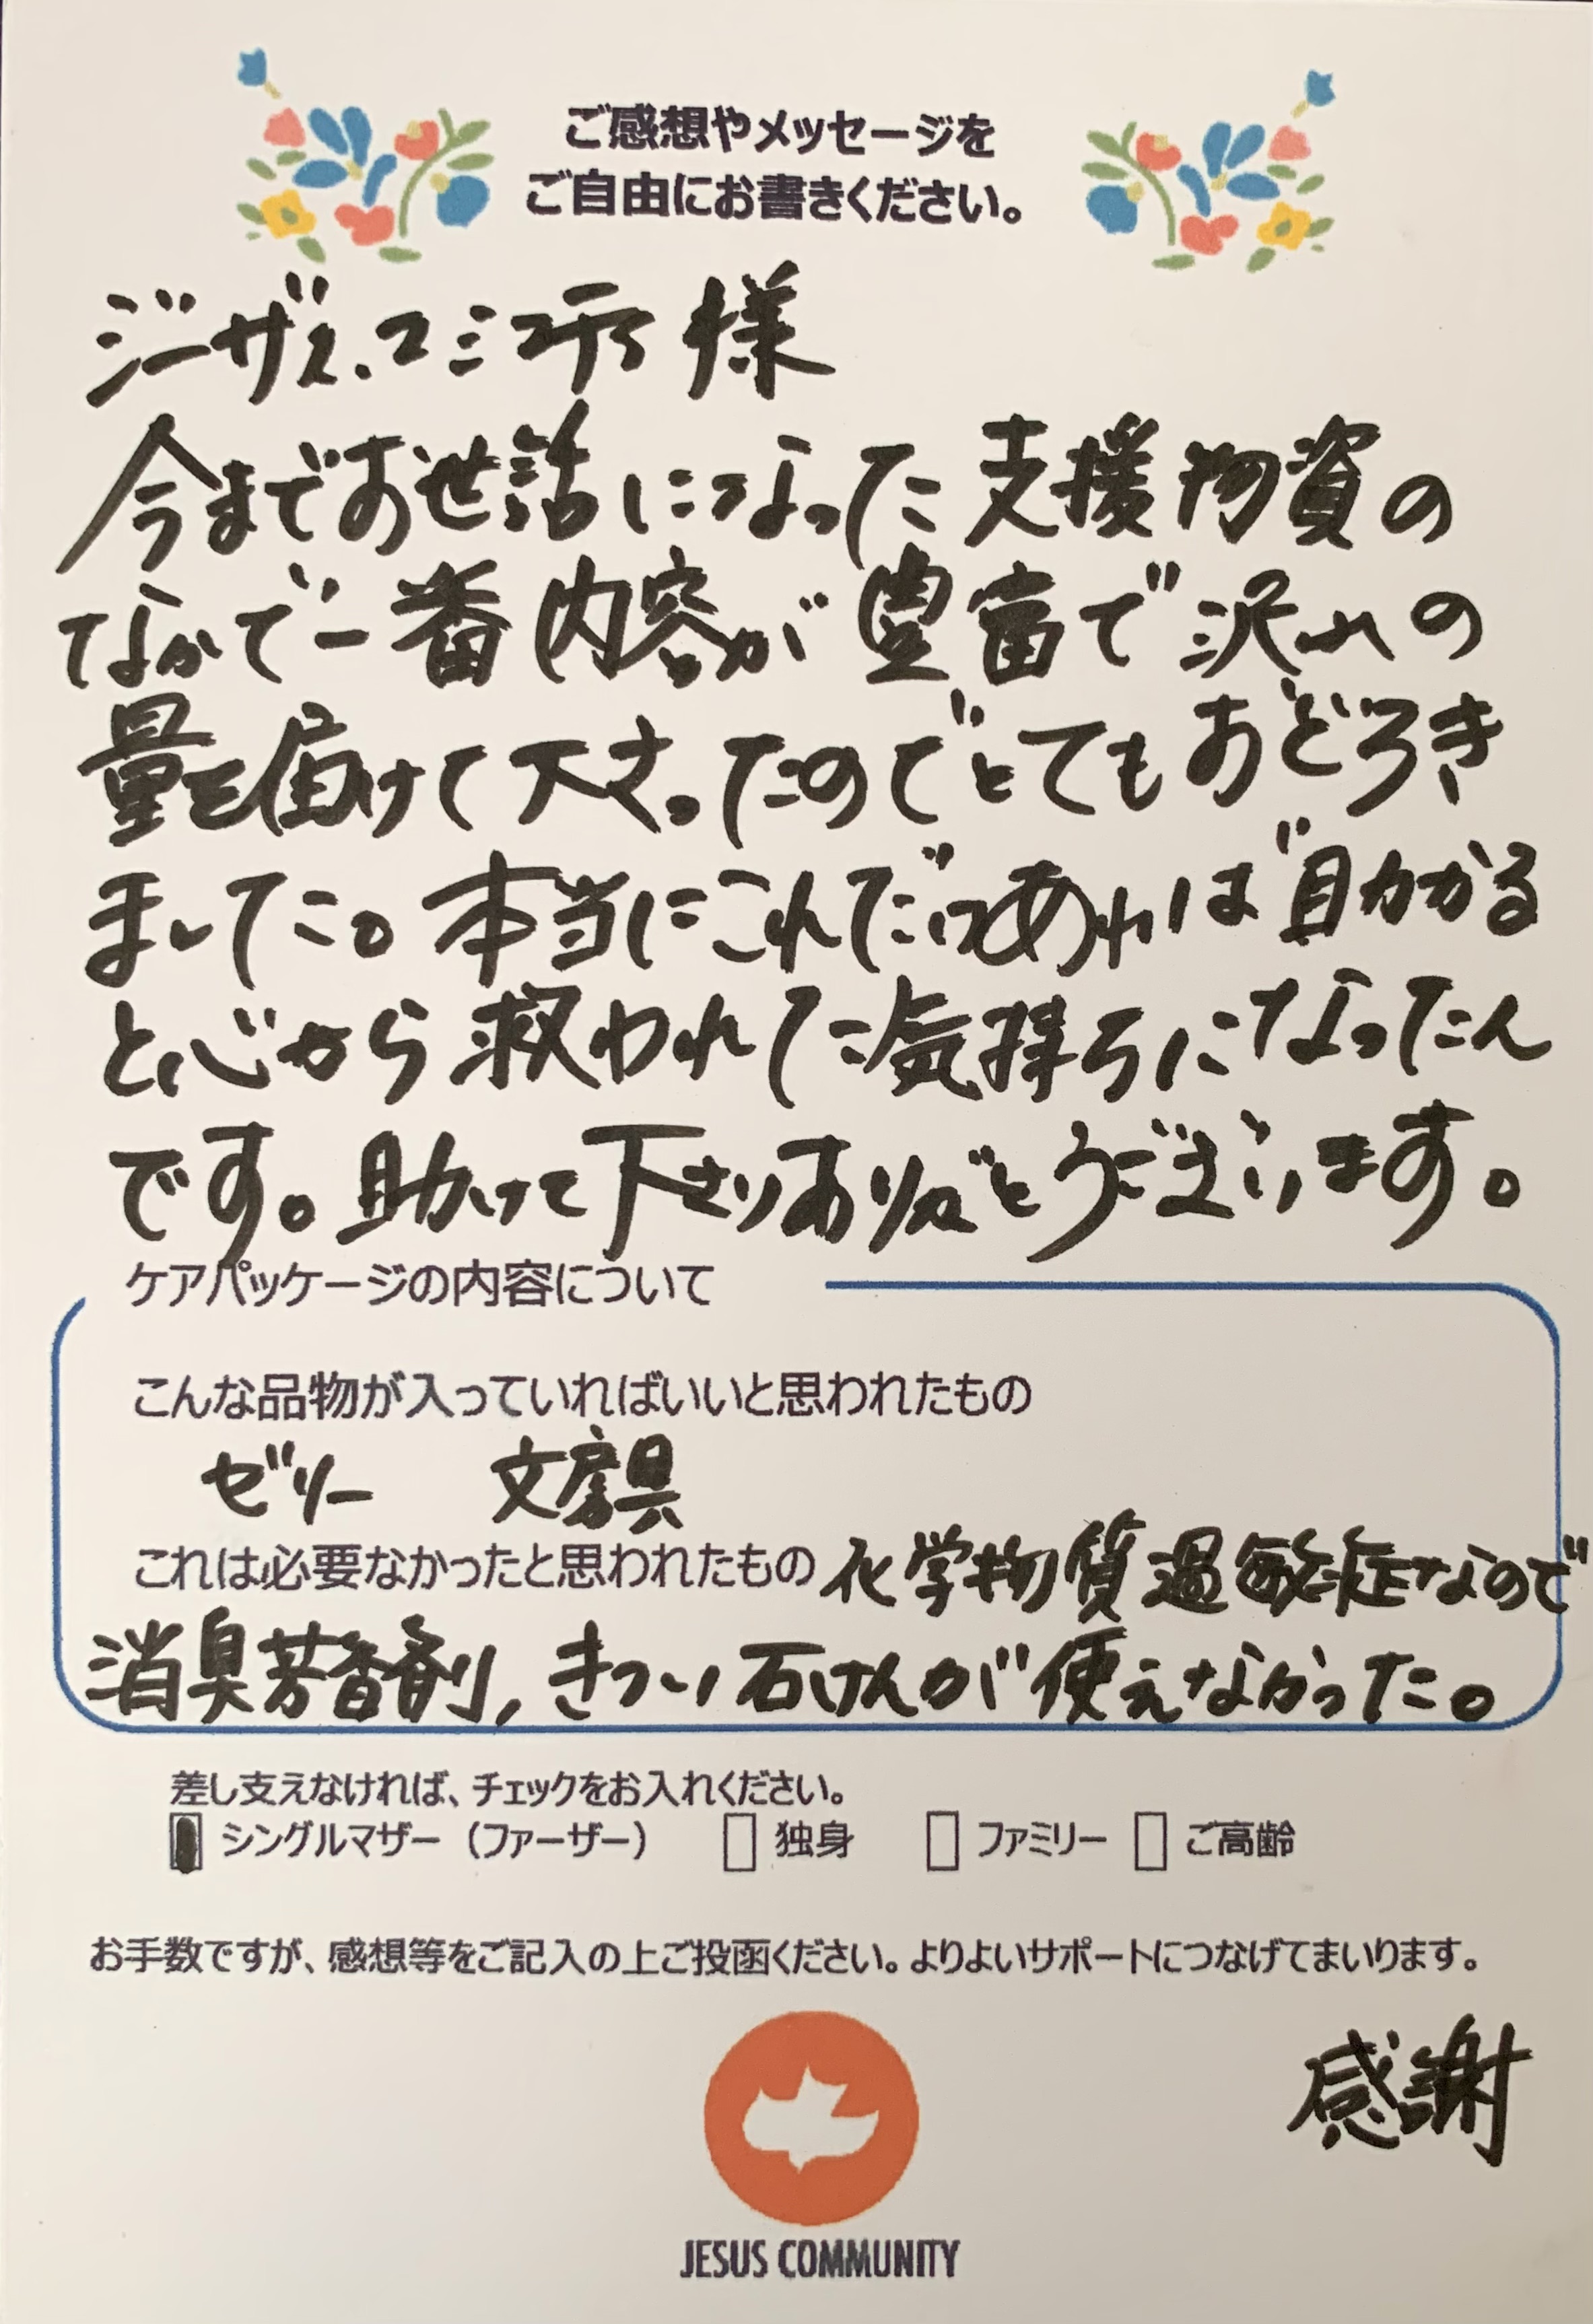 ご感想やメッセージを
ご自由にお書きください。
ジーザス.コミュニティ様
今までお世話になった支援物資の
なかで一番内容が豊富で沢山の
量を届けて下さったのでとてもおどろき
ました。本当にこれだけあれば助かる
と心から救われた気持ちになったん
です。助けて下さりありがとうございます。
ケアパッケージの内容について
こんな品物が入っていればいいと思われたもの
ゼリー 文房具
これは必要なかったと思われたもの 化学物質過敏症なので
消臭芳香剤,きつい石けんが使えなかった。
差し支えなければ、チェックをお入れください。
シングルマザー（ファーザー） 独身 ファミリー ご高齢
お手数ですが、感想等をご記入の上ご投函ください。よりよいサポートにつなげてまいります。
感謝
JESUS COMMUNITY